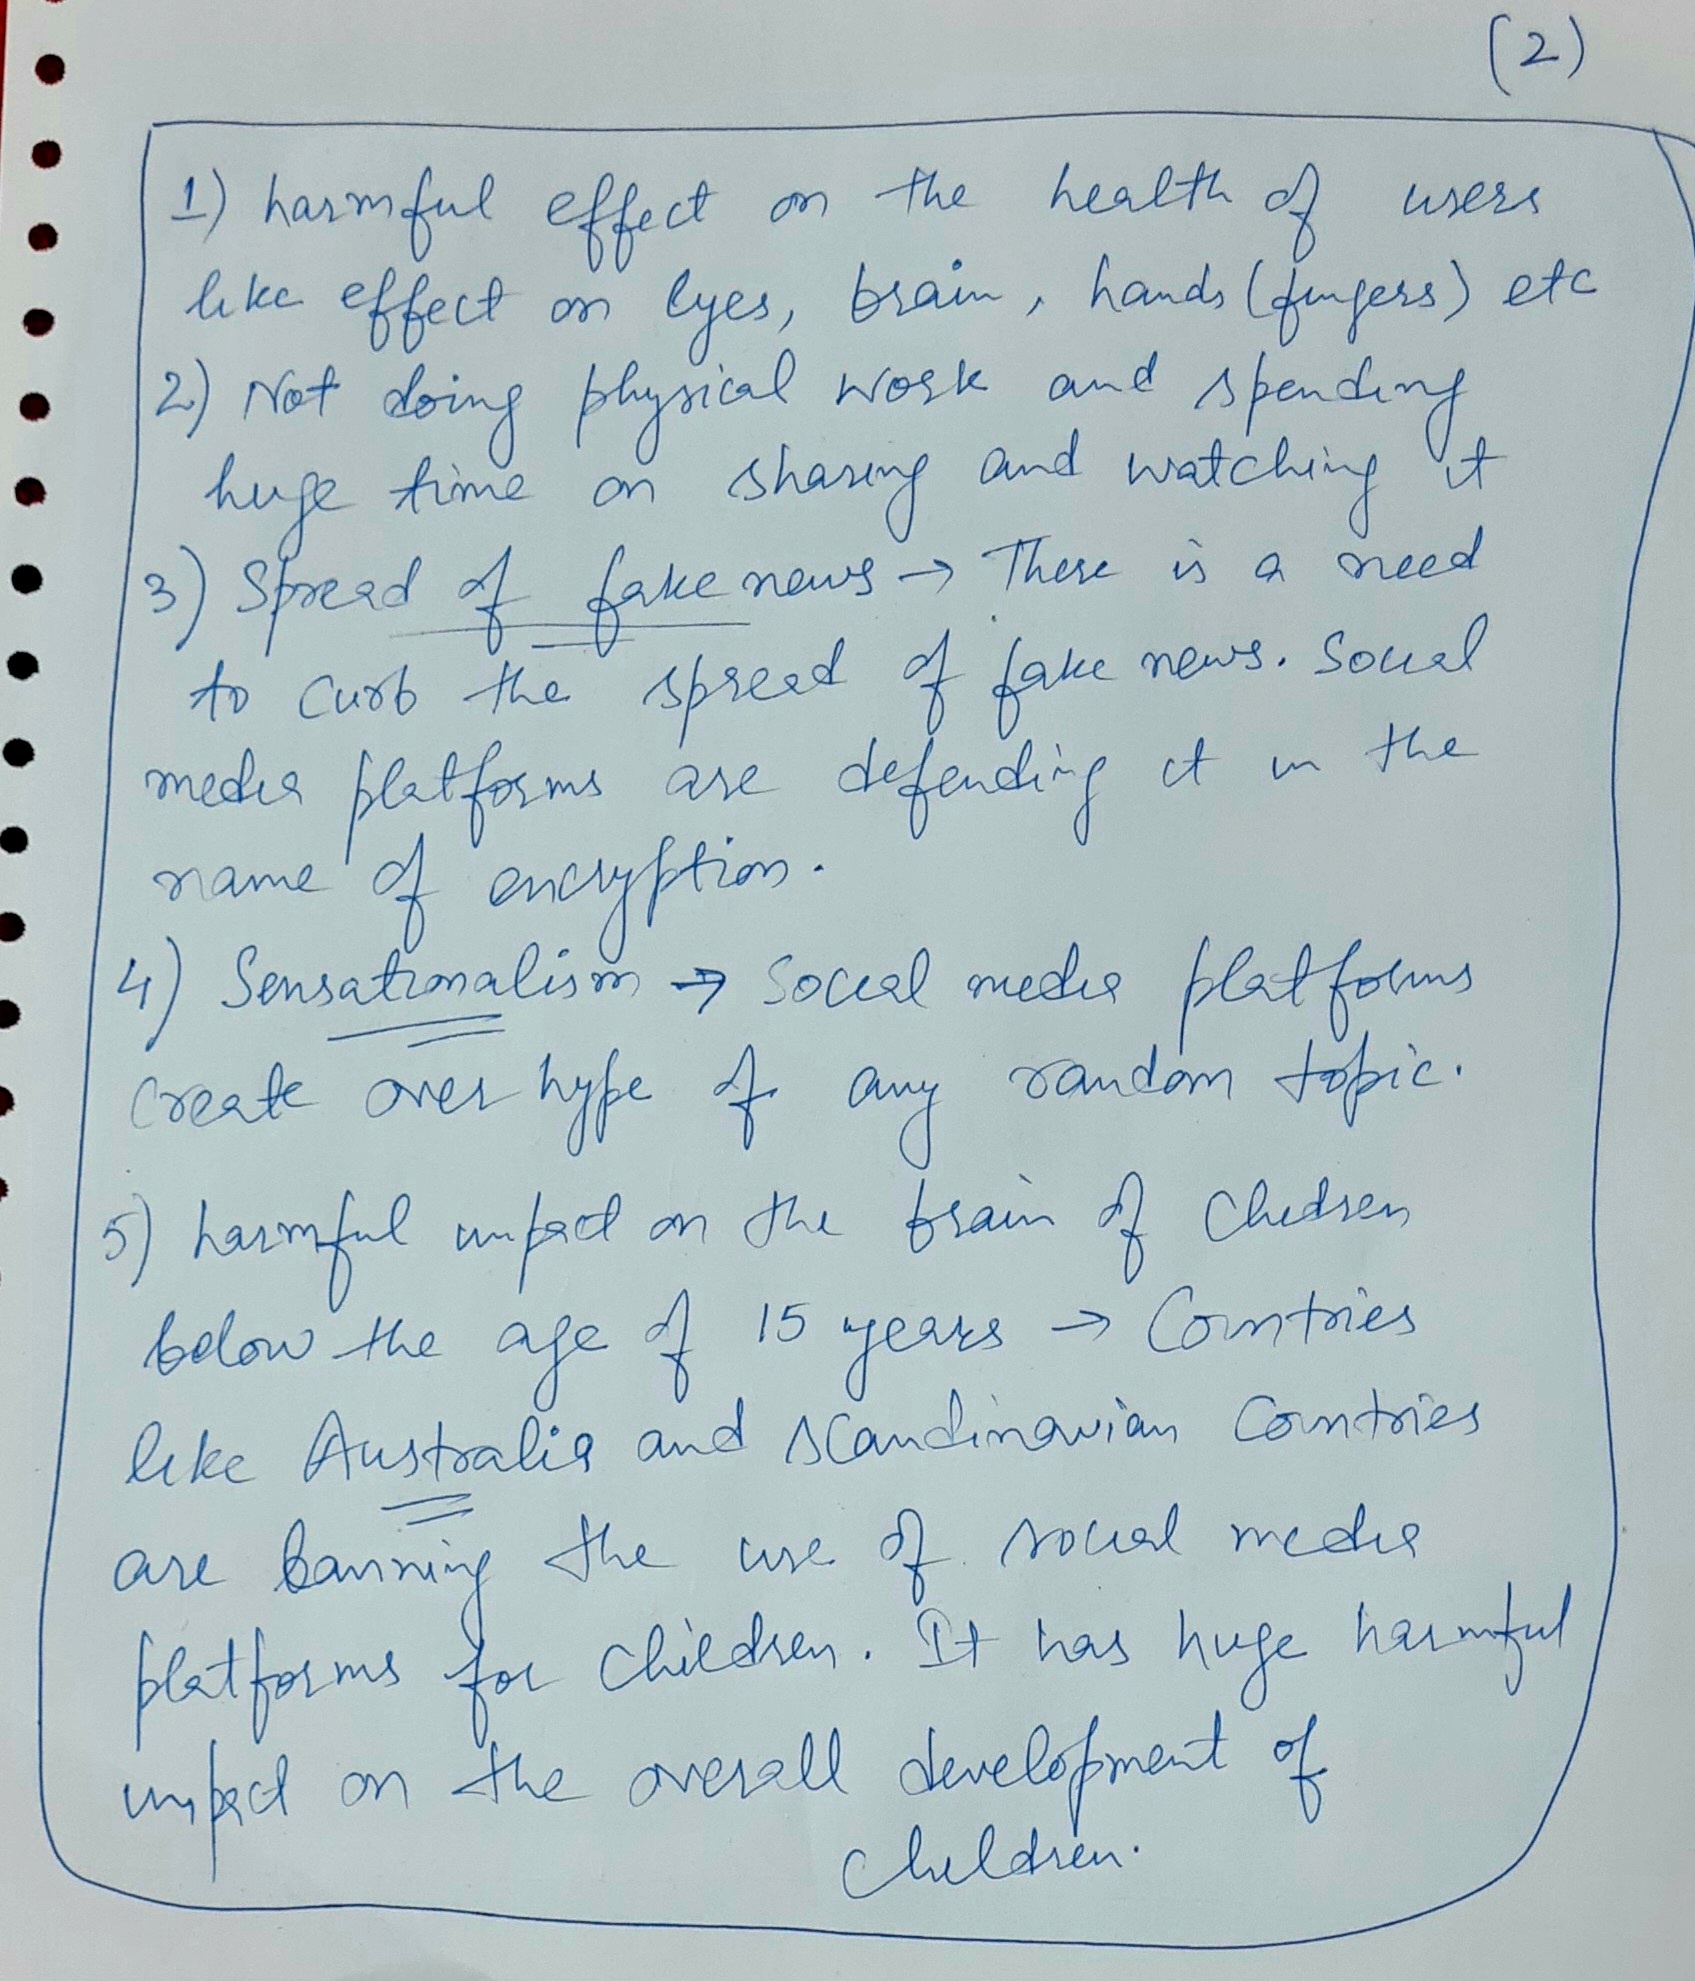 (2)
1) harmful effect on the health of users
like effect on eyes, brain, hands (fingers) etc
2) Not doing physical work and spending
huge time on sharing and watching it
3) Spread of fake news → There is a need
to curb the spread of fake news. Social
media platforms are defending it in the
name of encryption.
4) Sensationalism → Social media platforms
create over hype of any random topic.
5) harmful impact on the brain of children
below the age of 15 years → Countries
like Australia and scandinavian Countries
are banning the use of social media
platforms for children. It has huge harmful
impact on the overall development of
children.